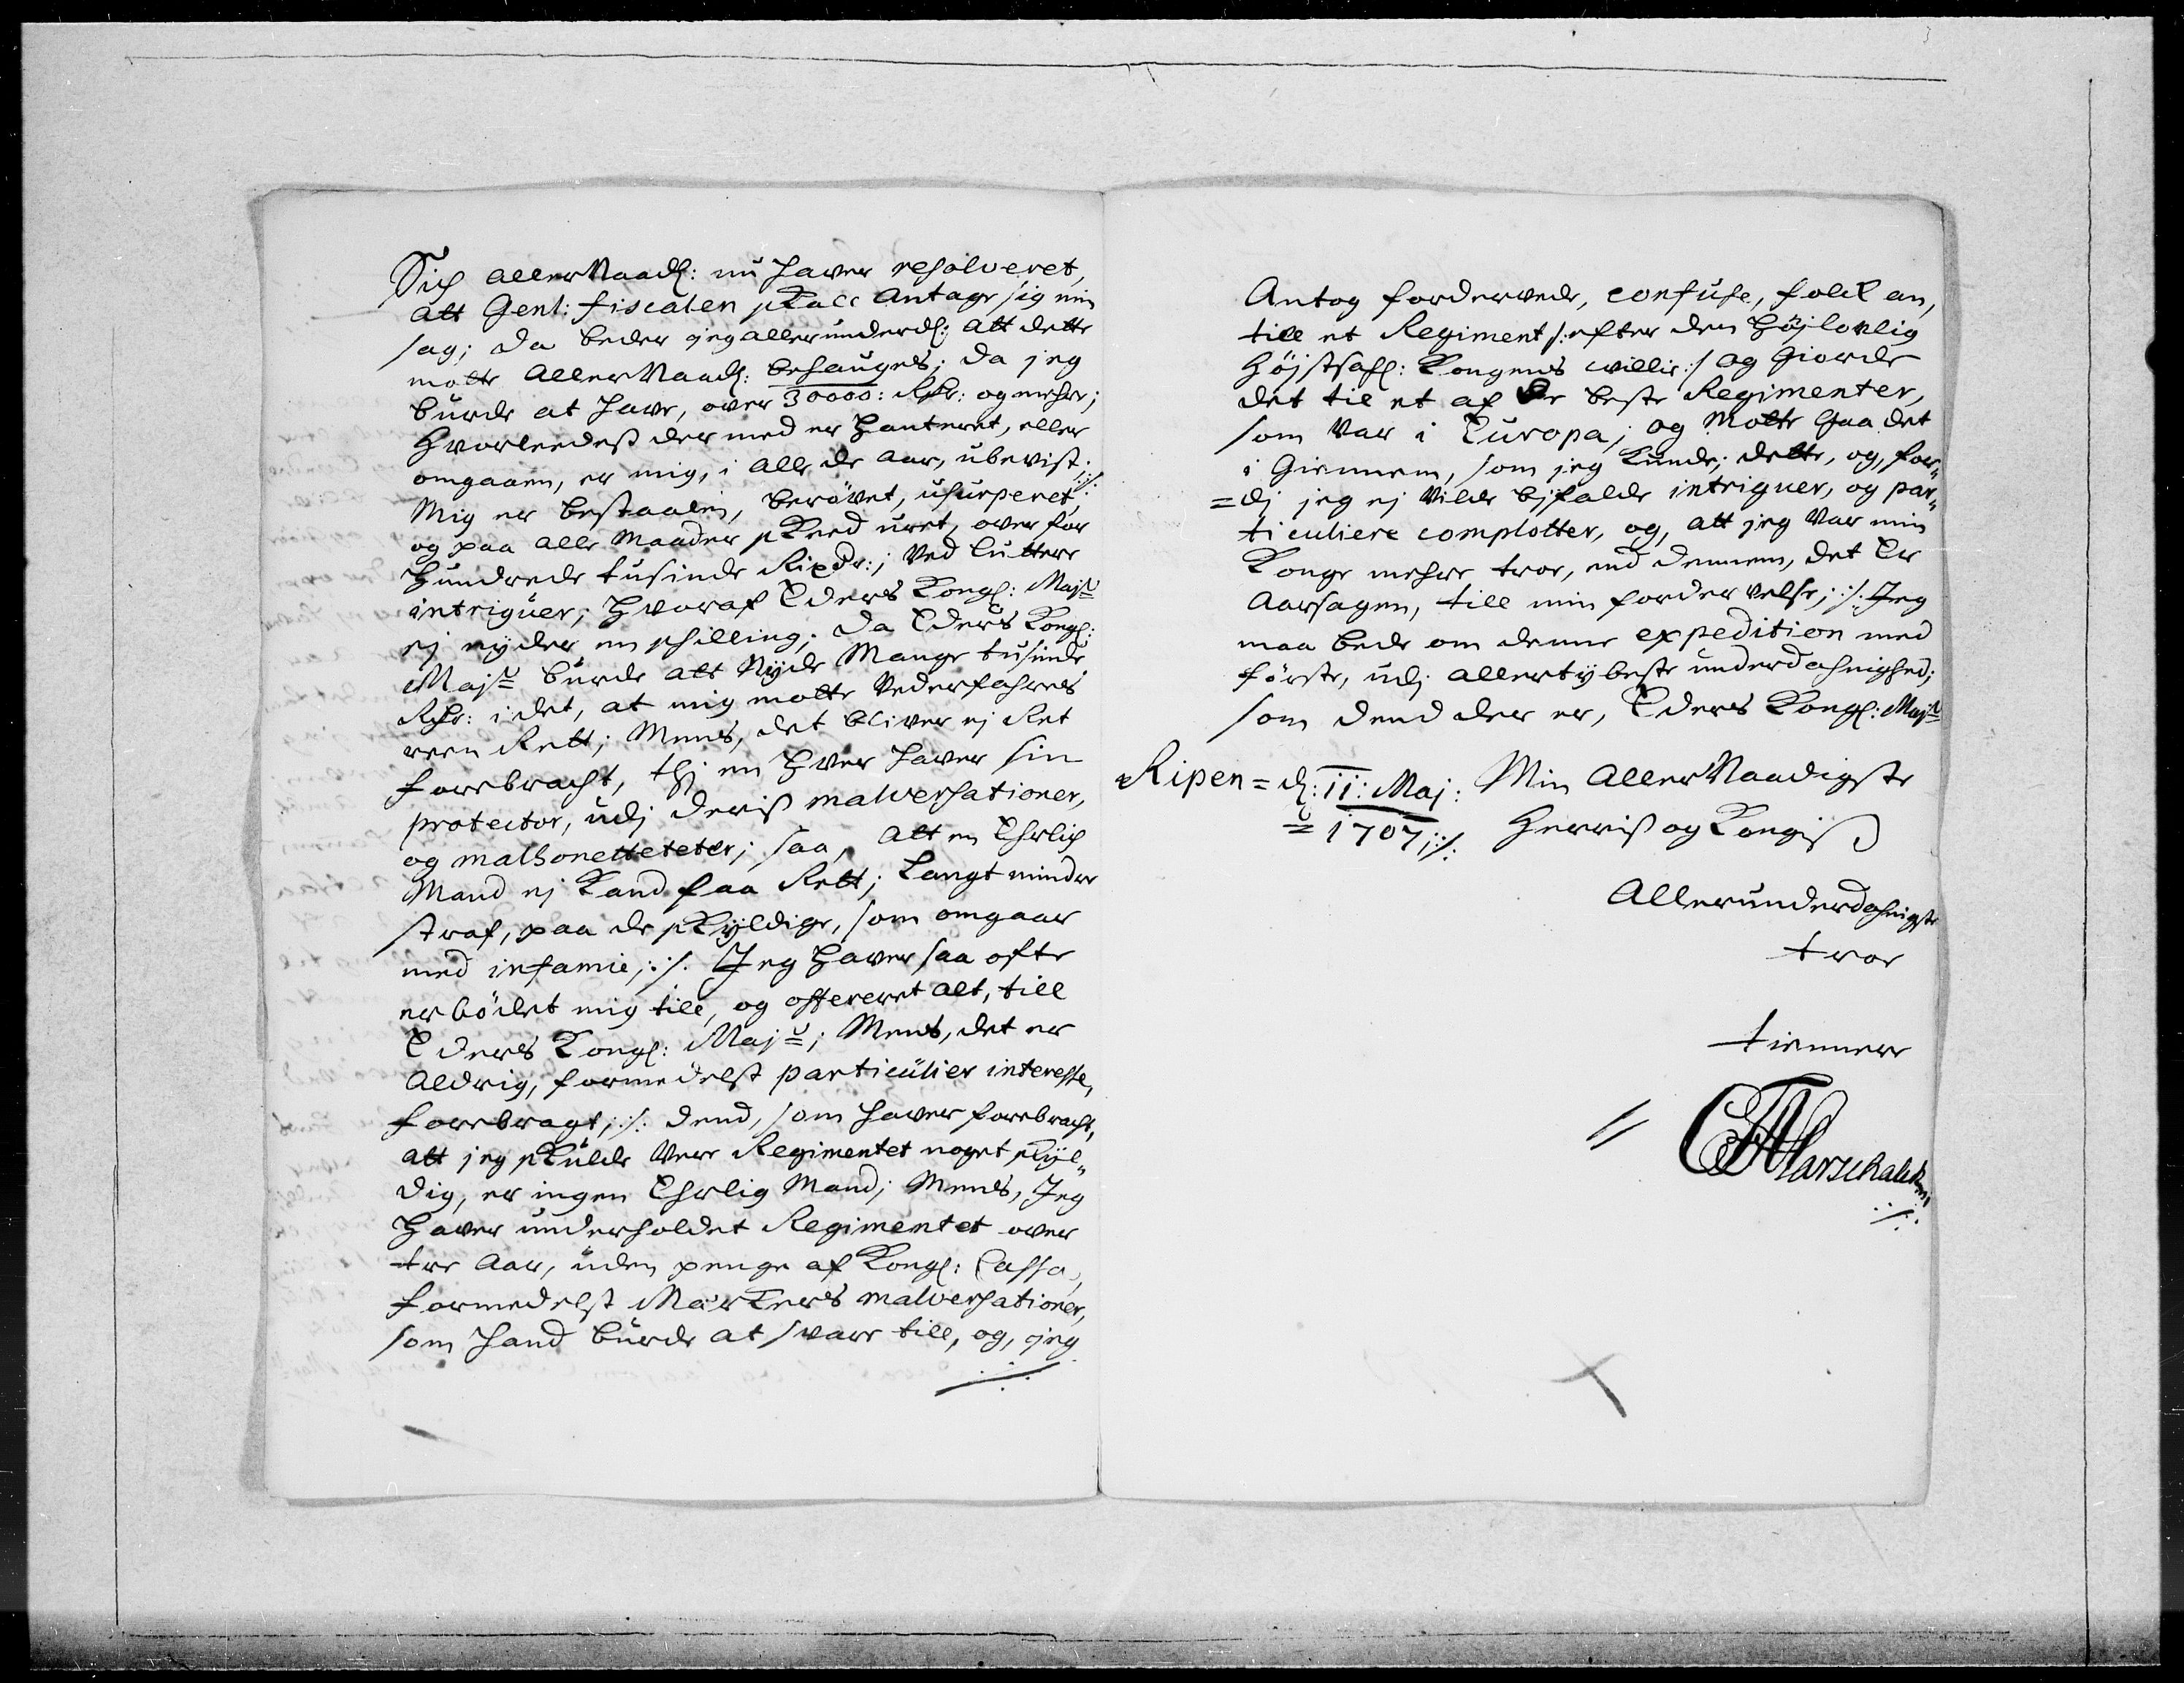 Sig allerNaadl: nu haver resolveret,
att Genl: fiscalen skall Antage sig min
sag; da beder jeg allerunderdl: att dette
motte allerNaadl: befauges; da jeg
burde at have, over 30000: Rdr: og mehre;
Hvorleedeß der med er Hanteret, eller
omgaaen, er mig, i alle de aar, ubevist:/:
Mig er bestaalen, berövet, usurperet,
og paa alle Maader skeed uret, over for
Hundrede tusinde Rixdr:; ved lutter
intriguer; Hvoraf Eders Kongl: Majt
ej nyder en schilling; da Eders Kongl:
Majt burde att Nyde Mange tusinde
Rdr: i det, at mig motte Vederfahres
reen Rett; Mens, det bliver ej Ret
forebracht, thj en Hver haver sin
protector, udj deriß malversationer,
og malhonetteteter; saa, att en Ehrlig
Mand ej kand faa Rett; Langt mindre
straf, paa de skyldige, som omgaar
med infamie;:/: Jeg haver saa ofte
erbödet mig till, og offereret alt, till
Eders Kongl: Majt; Mens, det er
aldrig, formedelst particulier interesse,
forebragt;:/: Dend, som haver forebracht,
att jeg skulde Vere Regimentet noget skyl„
dig, er ingen Ehrlig Mand; Mens, Jeg
haver underholdet Regimentet over
tre aar, uden penge af Kongl: Cassa,
formedelst Märkers malversationer,
som hand burde at svare till, og, jeg
Antog forderwede, confuse, folck an,
till et Regiment /:efter den Höjlovlig
Höjstsahl: Kongens willie:/ og Giorde
det til et af de beste Regimenter,
som Var i Europa; og Motte Gaa det
i Giennem, som jeg kunde; dette, og, for„
=dj jeg ej Vilde bjfalde intriguer, og par„
ticuliere complotter, og, att jeg Var min
Konge mehre troe, end dennem, det Er
Aarsagen, till min fordervelse;:/: Jeg
maa bede om denne expedition med
förste, udj allertybeste underdahnighed;
som dend der er, Eders Kongl: Majt
Ripen = d: 11: Maj: Min AllerNaadigste
= 1707:/: Herris og Kongiß
Allerunderdahnigste
troe
tiennere
CFMarschalck